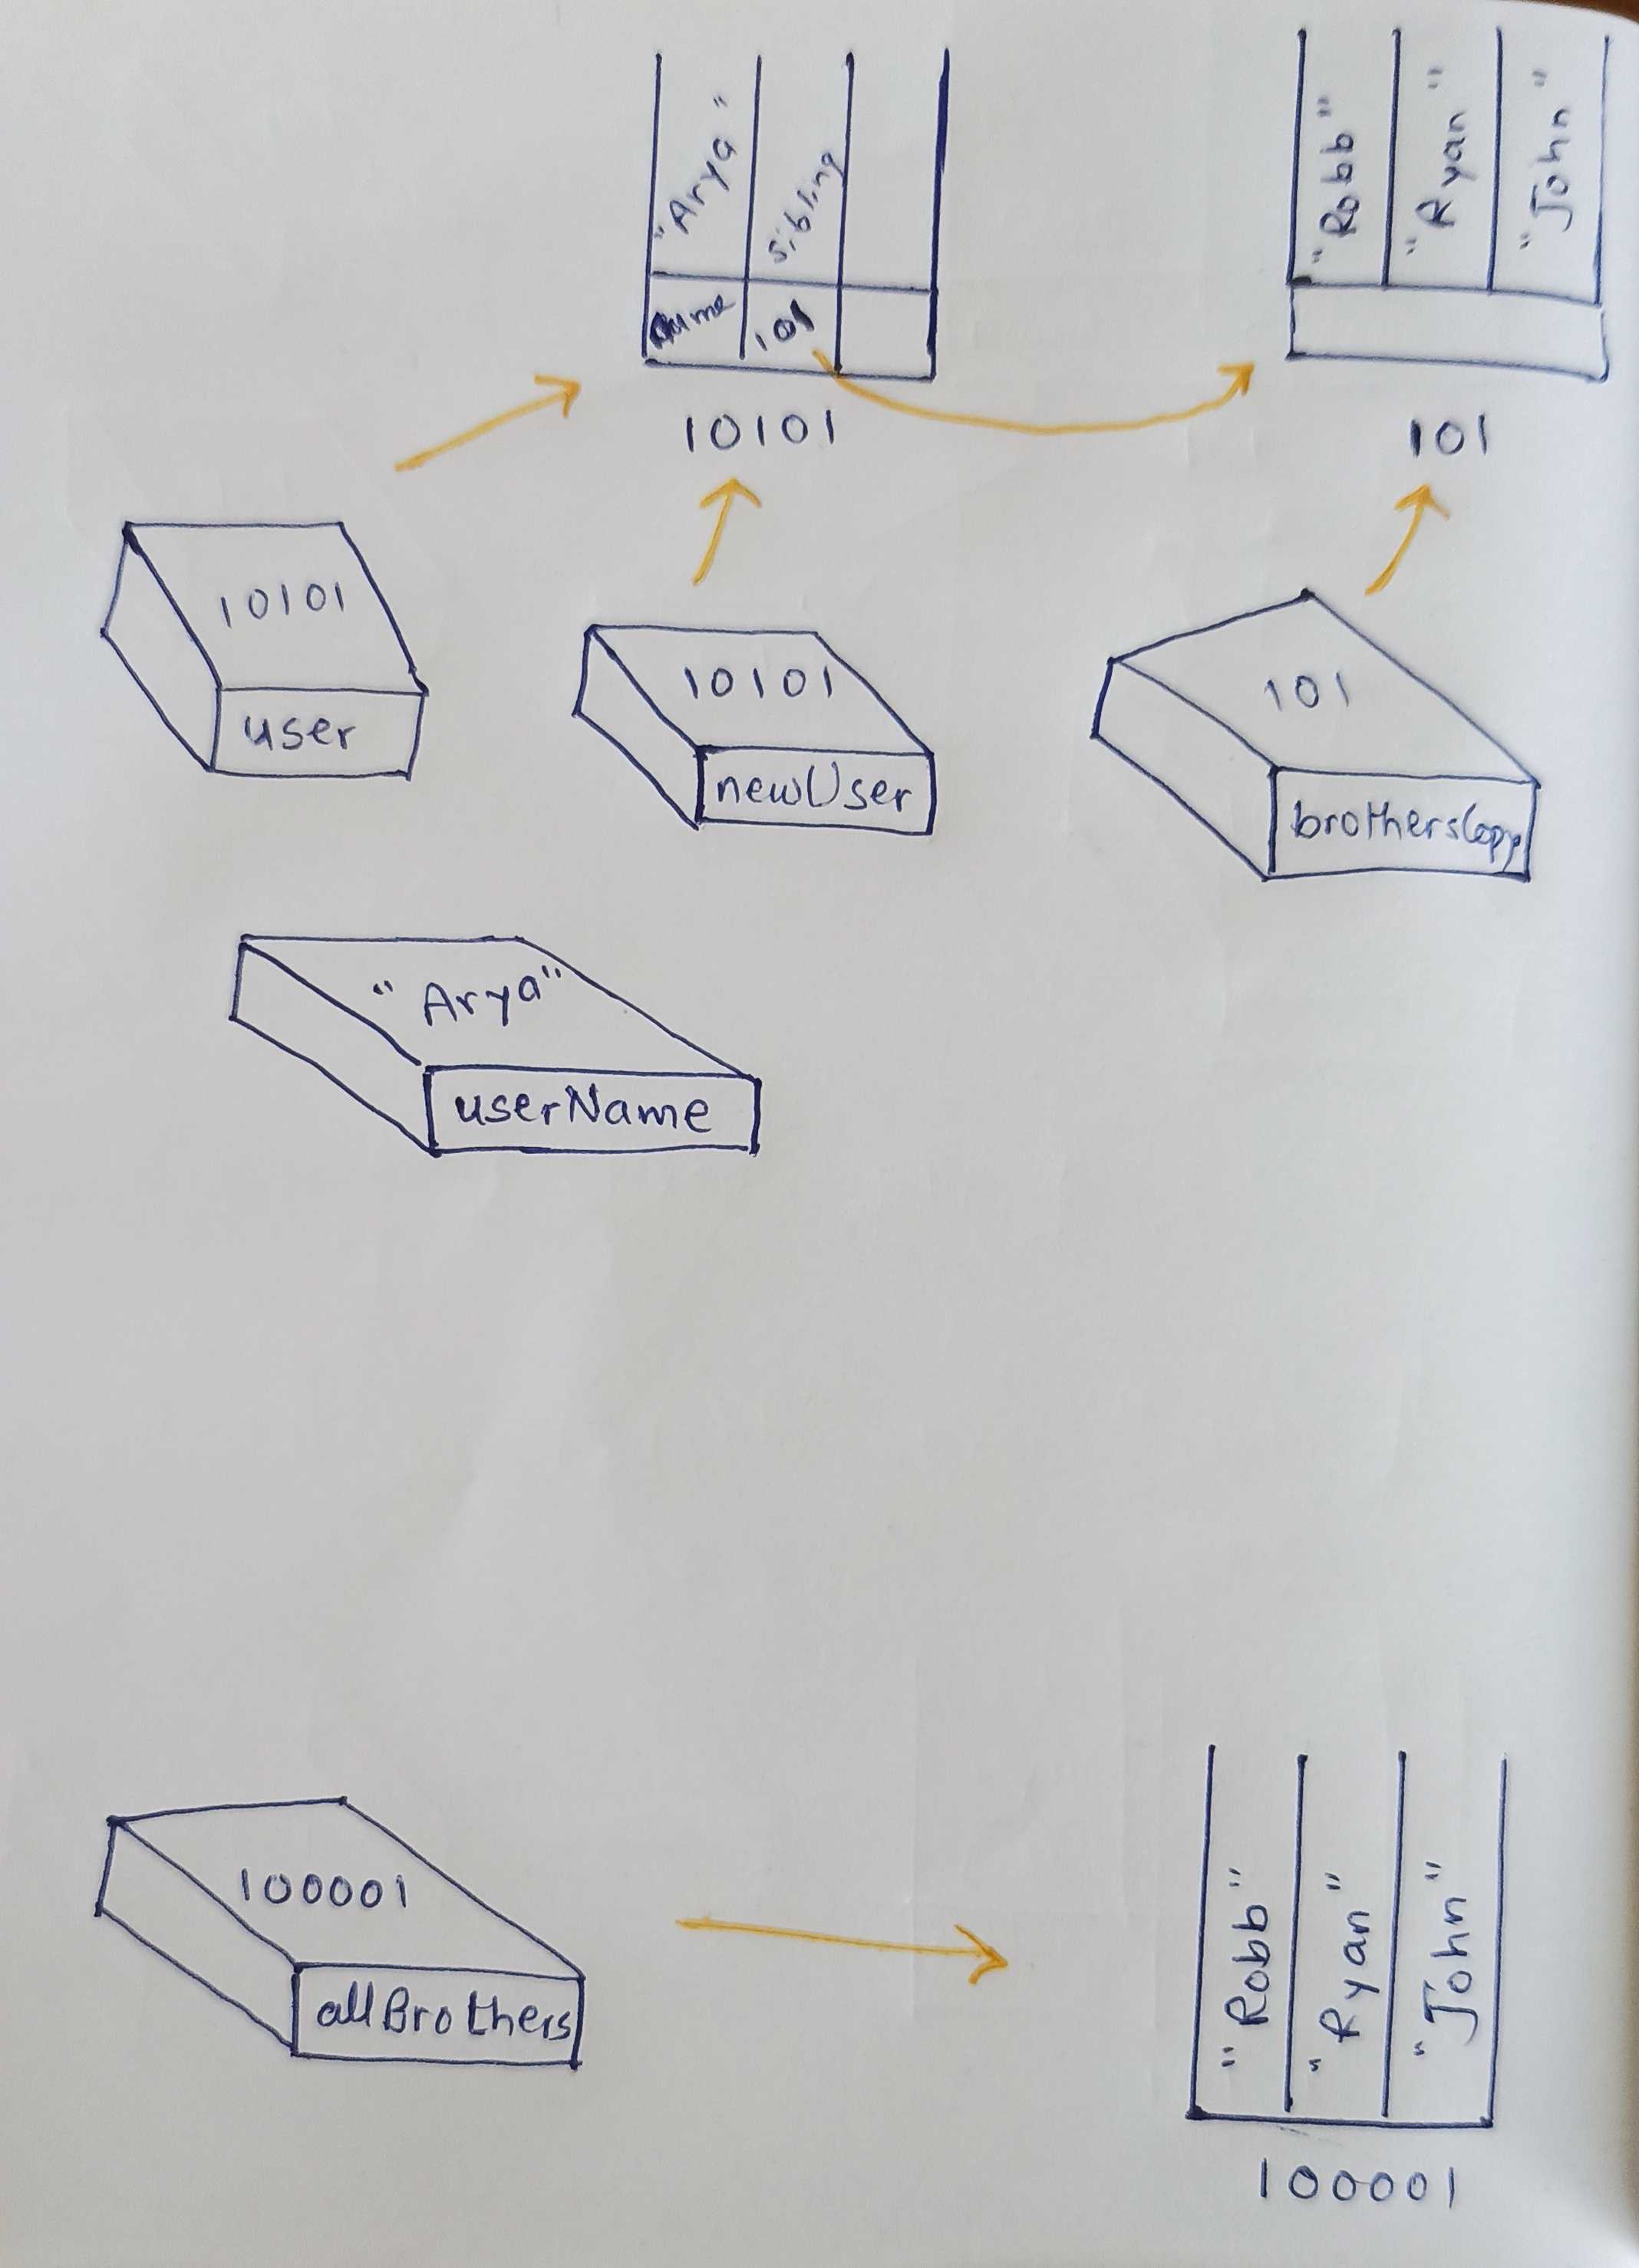 "Arya"
sibling
name
101
10101
"Robb"
"Ryan"
"John"
101
10101
user
10101
newUser
101
brothersCopy
"Arya"
userName
100001
allBrothers
"Robb"
"Ryan"
"John"
100001